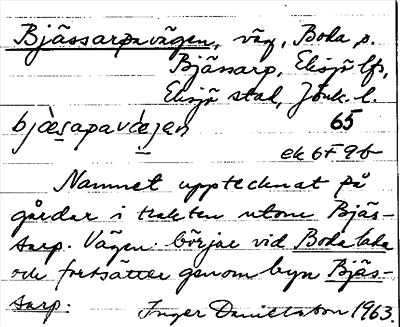 Bjässarpavägen, väg, Boda p.
Bjässarp, Eksjö lfs,
Eksjö stad, Jönk. l.
bjæ̀s̠apavæ̀jen 65
ek 6F 9b
Namnet upptecknat på
gårdar i trakten utom Bjäs-
sarp. Vägen börjar vid Boda lada
och fortsätter genom byn Bjäs-
sarp. Inger Danielsson 1963.